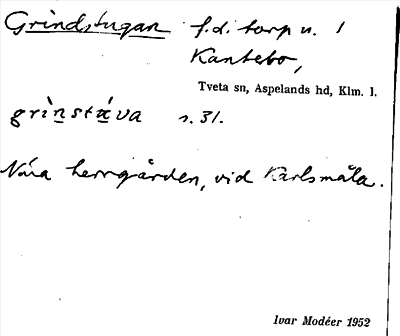 Grindstugan f.d. torp u. 1
Kantebo,
Tveta sn, Aspelands hd, Klm. l.
grìnstúva s. 31.
Nära herrgården, vid Karlsmåla.
Ivar Modéer 1952